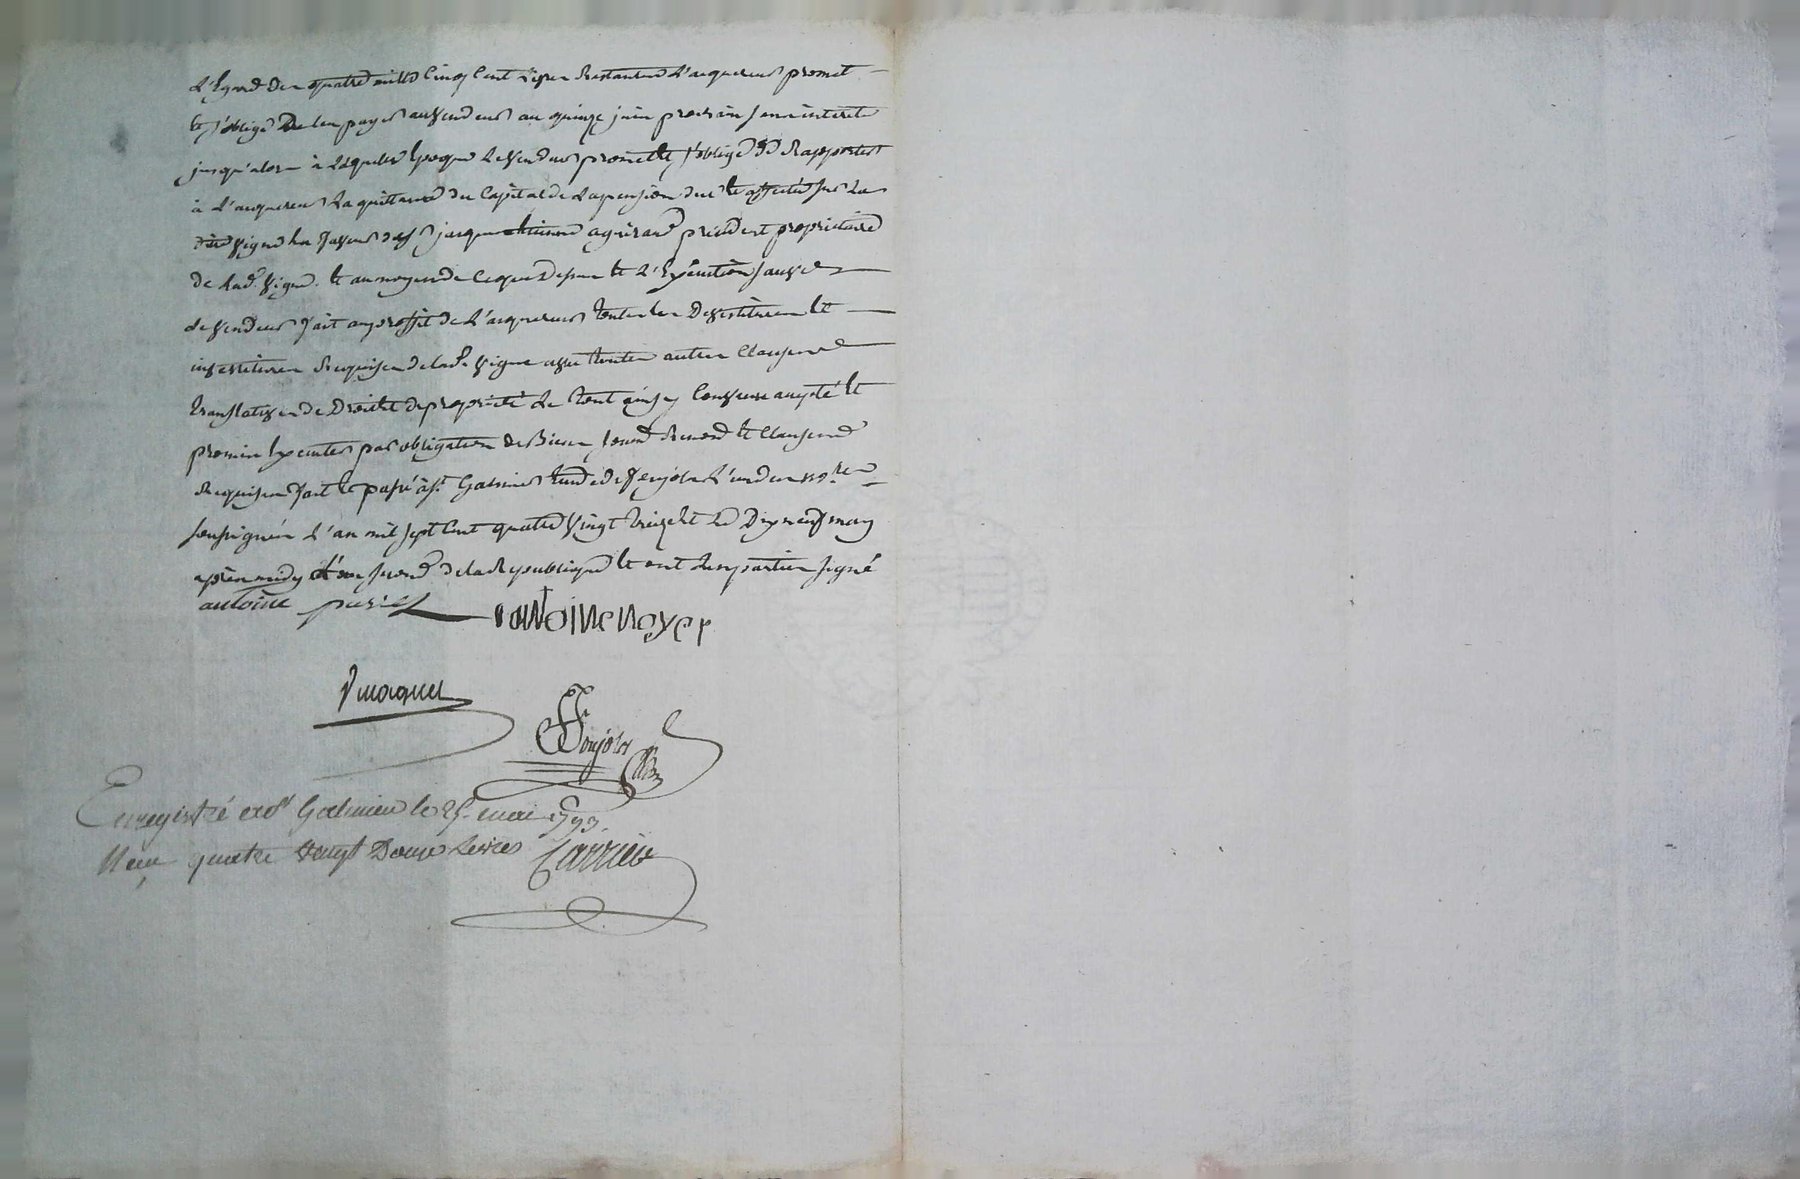 L'Egard des quatre mille cinq cent livres Restantes L'acquereur promet
et s'oblige De les payer au vendeur au quinze juin prochain sans interets
jusqu'alors à Laquelle Epoque Le vendeur promet et s'oblige De Rapporter
à L'acquereur La quittance du Capital de La pension due et affectée sur La
dite vigne En faveur de jacque agirard précédent proprietaire
de lad.e vigne. et au moyen de ce que Dessus et L'Exécution sauve
Le vendeur fait au proffit de L'acquereur toutes les Devestitures et
investitures Requises de lad.e vigne avec toutes autres Clauses
translatives de Droit et de propriété Le tout ainsy Convenu accepté et
promis Executer par obligation de Biens soumis Renon et Clauses
Requises fait et passé à s.t Galmier Etude de fenjolet L'un des no.res
soussignés L'an mil sept cent quatre vingt treize et Le Dix neuf may
après midy L'an second de la Republique et ont Les parties signé
antoine
antoine noyer
fenjolet
Enregistré a st Galmier le 25 mai 1793.
Reçu quatre vingt Douze Livres Carrier